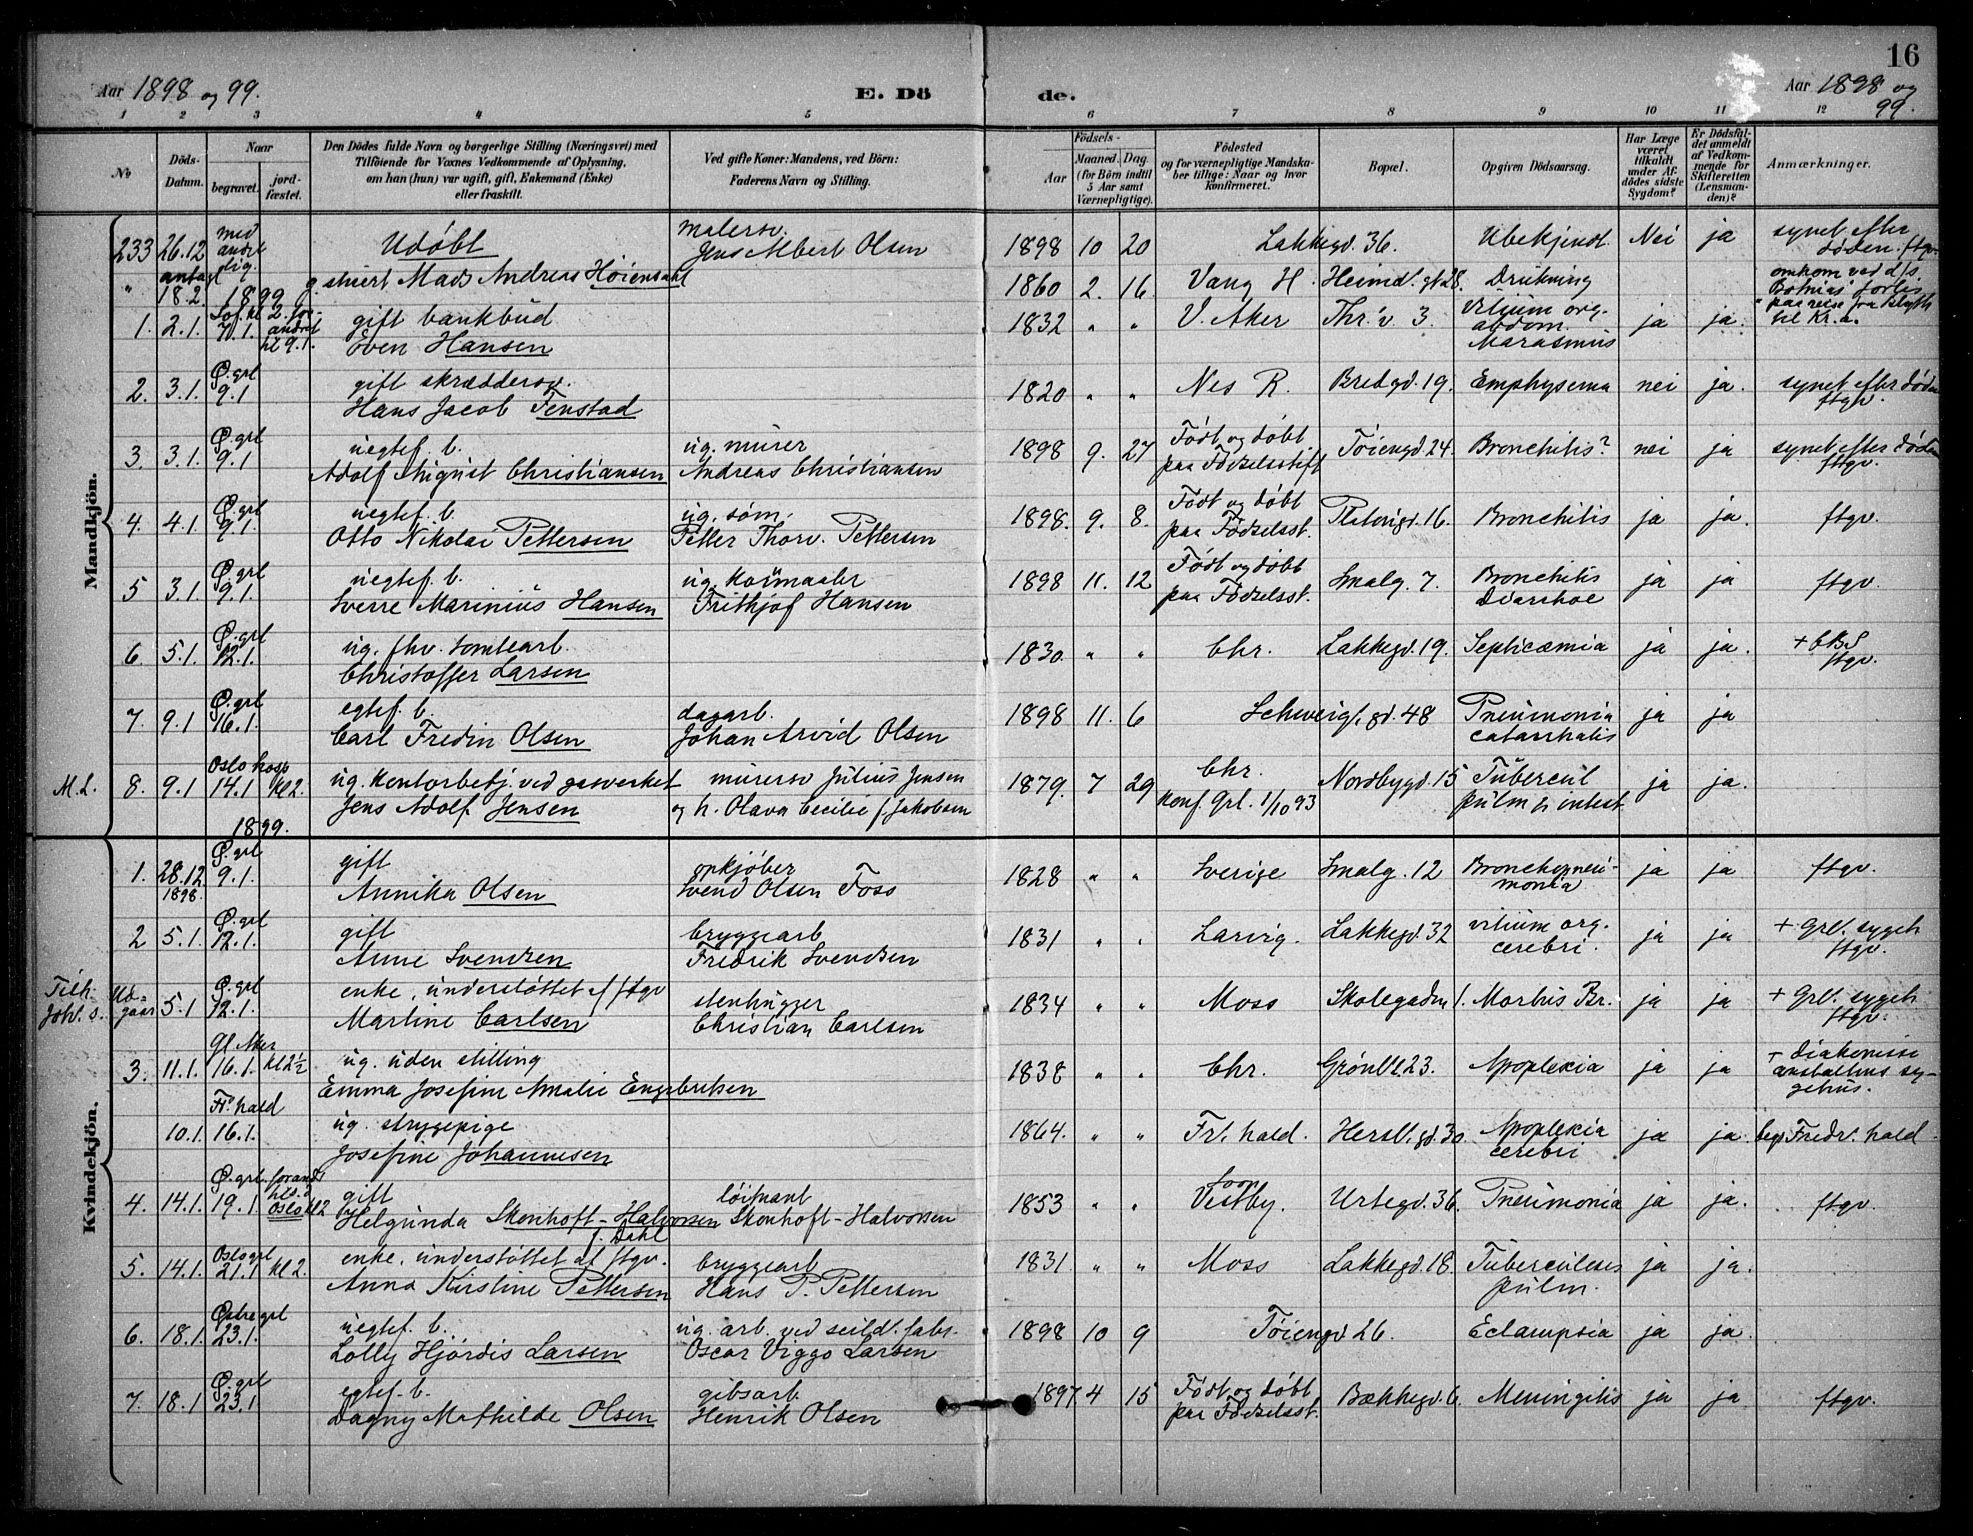 16
Aar 1898 og 99.
E. Dö
de.
Aar 1898 og 99.
1 2 3 4 5 6 7 8 9 10 11 12
No
Döds-Datum.
Naar
begravet.
jord-fæstet.
Den Dödes fulde Navn og borgerlige Stilling (Næringsvei) med
Tilföiende for Voxnes Vedkommende af Oplysning,
om han (hun) var ugift, gift, Enkemand (Enke)
eller fraskilt.
Ved gifte Koner: Mandens, ved Börn:
Faderens Navn og Stilling.
Födsels-
Aar
Maaned. Dag.
(for Börn indtil
5 Aar samt
Værnepligtige).
Födested
og for værnepligtige Mandska-
ber tillige: Naar og hvor
konfirmeret.
Bopæl.
Opgiven Dödsaarsag.
Har Læge
været
tilkaldt
under Af-
dödes sidste
Sygdom?
Er Dödsfal-
det anmeldt
af Vedkom-
mende for
Skifteretten
(Lensman-
den)?
Anmærkninger.
Mandkjön.
233 26.12 med andet lig. Udöbt malersv. Jens Albert Olsen 1898 10 20 Lakkegd. 36. Ubekjendt. Nei ja synet efter döden. ftgv.
" antagl 18.2. g. stuert Mads Andreas Höiensahl 1860 2. 16. Vang H. Heimdl. gt 28. Drukning omkom ved d/s Botnias forlis paa reise fra Blyth til Kr.a.
1899
1. 2.1. 7.1. gift bankbud Even Hansen 1832 " " V. Aker Thr.v. 3. Vitium org. abdom. Marasmus ja ja.
2. 3.1. Ø. grl 9.1 gift skræddersv. Hans Jacob Fenstad 1820 " " Nes R. Bredgd. 19. Emphysema nei ja. synet efter döden ftgv.
3. 3.1. Ø. grl 9.1 uegtef. b. Adolf August Christiansen ug. murer Andreas Christiansen 1898 9. 27 Födt og döbt paa Födselsstift Töiengd 24. Bronchitis? nei ja synet efter döden ftgv.
4. 4.1. Ø. grl 9.1. uegtef. b. Otto Nikolai Pettersen ug. söm. Petter Thorv. Pettersen 1898. 9. 8. Födt og döbt paa Födselsst. Platougd. 16. Bronchitis ja ja. ftgv.
5 3.1. Ø. grl 9.1. uegtef. b. Sverre Marinius Hansen ug. Kornmaaler Frithjof Hansen 1898 11. 12 Födt og döbt paa Födselsst. Smalg. 7. Bronchitis Diarrhoe ja ja ftgv.
6. 5.1. Ø. grl 12.1. ug. fhv. tomtearb. Christoffer Larsen 1830. " " Chr. Lakkegd. 19. Septicæmia ja ja. + CBS ftgv.
7. 9.1 Ø. grl 16.1. egtef. b. Carl Fredin Olsen dagarb. Johan Arvid Olsen 1898 11. 6 Schweigs. gd. 48 Pneumonia catarrhalis ja ja
M.L. 8. 9.1 Oslo hosp 14.1 kl 2. ug. Kontorbetj. ved gasverket Jens Adolf Jensen murersv Julius Jensen og h. Olava Cecilie f. Jakobsen 1879. 7 29 Chr. konf. Grl. 1/10 93 Nordbygd. 15 Tubercul pulm & intest. ja ja.
1899.
Kvindekjön.
1. 28.12 1898. Ø. grl 9.1. gift Annika Olsen opkjöber Svend Olsen Foss 1828 " " Sverige Smalg. 12 Bronchopneumonia ja ja ftgv.
2 5.1. Ø. grl 12.1. gift Anne Svendsen bryggearb Fredrik Svendsen 1831 " " Larvig. Lakkegd. 32 vitium org. cerebri. ja ja + Grl. sygeh ftgv.
Tilh. Joh. s. Udgaar 5.1 Ø. grl 12.1. enke, understöttet af ftgv Martine Carlsen stenhugger Christian Carlsen 1834 " " Moss Skolegaden 1. Morbus Br. ja ja + Grl. sygeh ftgv.
3. 11.1. Gl. Aker 16.1. kl 2½ ug. uden stilling Emma Josefine Amalie Engebretsen 1838 " " Chr. Grönl 23. Apoplexia ja ja + diakonisse anstaltens sygehus.
10.1. Fr. hald 16.1. ug. strygepige Josefine Johannesen 1864. " " Fr. hald. Hersl. gd. 30 Apoplexia cerebri ja ja. begr Fredr. hald.
4. 14.1. Ø. grl. 19.1 Oslo kl 2 gift Helgunda Skonhoft-Halvorsen f. Dahl löitnant Skonhoft-Halvorsen 1853 " " Soon Vestby. Urtegd. 36. Pneumonia ja ja. ftgv.
5. 14.1. Oslo grl 21.1 kl 2. enke, understöttet af ftgv. Anna Kirstine Pettersen bryggearb Hans P. Pettersen 1831. " " Moss Lakkegd. 18. Tuberculosis pulm. ja ja.
6. 18.1. Östre grl 23.1. uegtef. b. Lolly Hjördis Larsen ug. arb. ved seild. fabr. Oscar Viggo Larsen 1898 10 9 Töiengd 26. Eclampsia ja ja.
7. 18.1 Ø. grl 23.1 egtef. b. Dagny Mathilde Olsen gibsarb. Henrik Olsen 1897 4 15 Födt og döbt paa Födselsst. Bækkegd. 6. Meningitis ja ja ftgv.